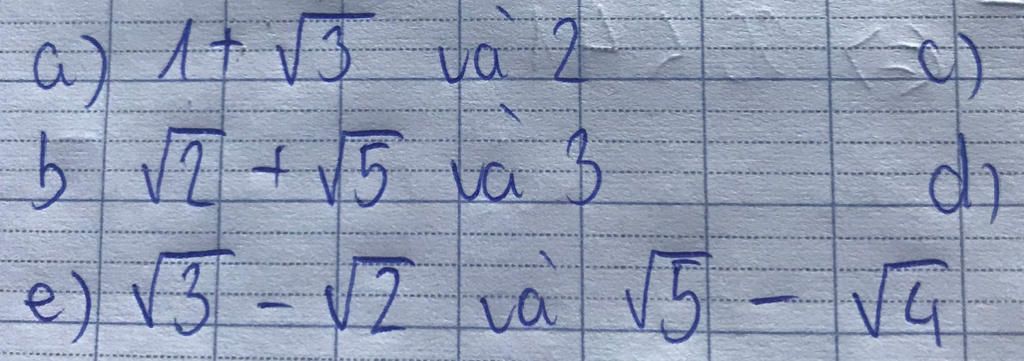 a) 1 + √3 và 2 c)
b √2 + √5 và 3 d)
e) √3 - √2 và √5 - √4